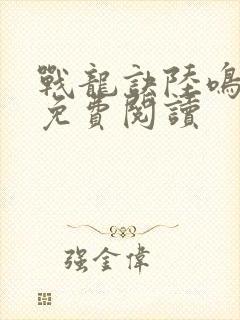 戰龍訣陸鳴
免費閱讀
强金偉